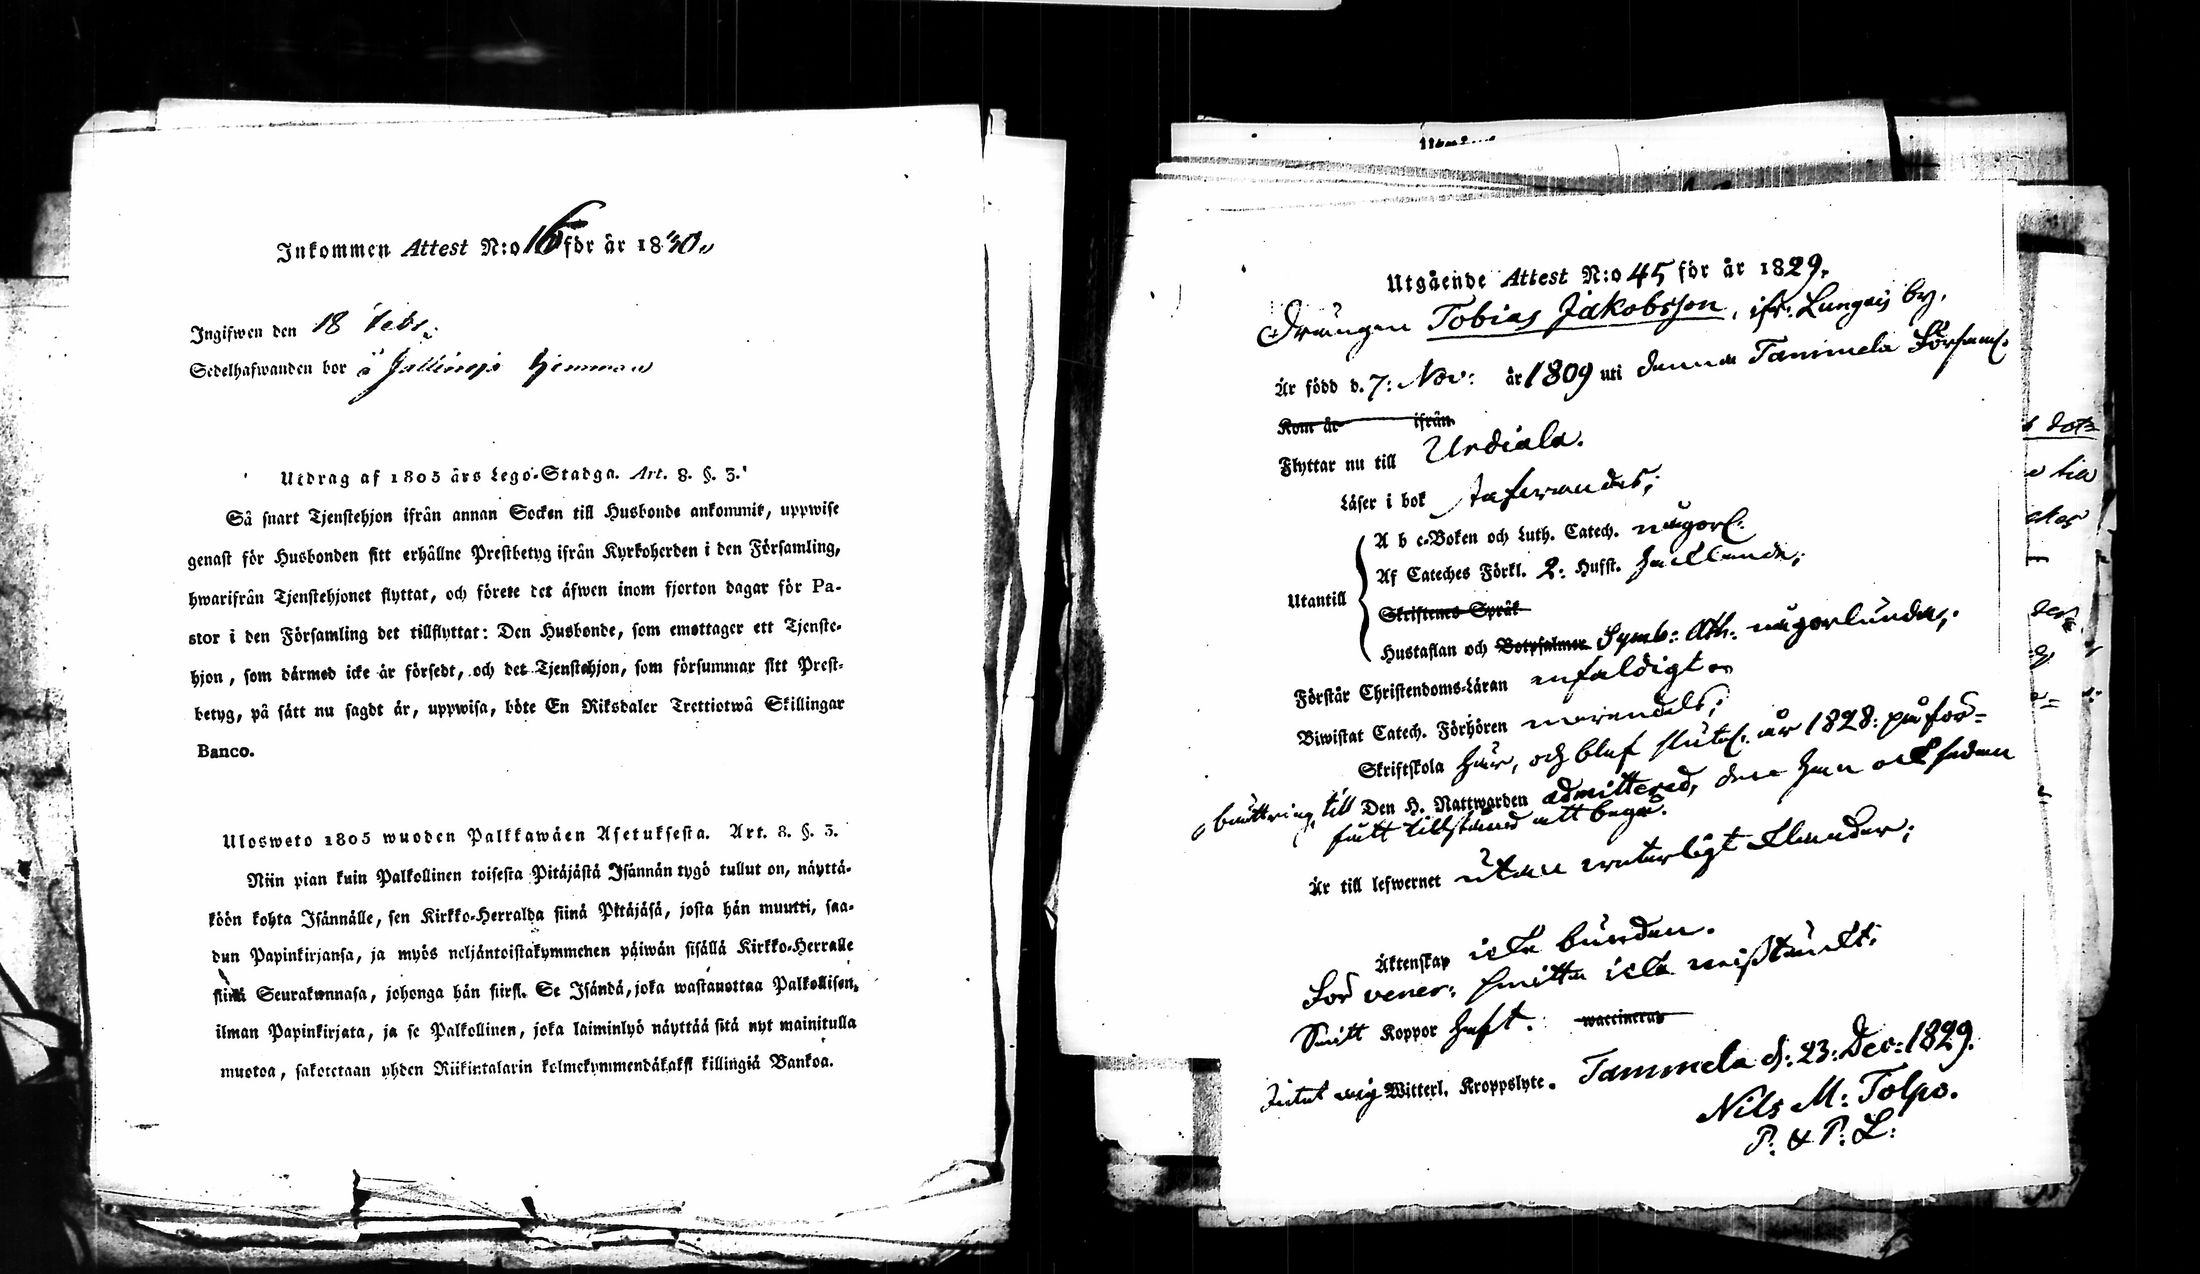 Inkommen Attest N:o 16 för år 1830.
Ingifwen den 18 Febr:
Sedelhafwanden bor å Hemman
Utdrag af 1805 års Lego-Stadga. Art. 8. §. 3.
Så snart Tjenstehjon ifrån annan Socken till Husbonde ankommit, uppwise
genast för Husbonden sitt erhållne Prestbetyg ifrån Kyrkoherden i den Församling,
hwarifrån Tjenstehjonet flyttat, och förete det äfwen inom fjorton dagar för Pa-
stor i den Församling det tillflyttat: Den Husbonde, som emottager ett Tjenste-
hjon, som därmed icke är försedt, och det Tjenstehjon, som försummar sitt Prest-
betyg, på sått nu sagdt är, uppwisa, böte En Riksdaler Trettiotwå Skillingar
Banco.
Ulosweto 1805 wuoden Palkkawäen Asetuksesta. Art. 8. §. 3.
Niin pian kuin Palkollinen toisesta Pitäjästä Isännän tygö tullut on, näyttä-
köön kohta Isännälle, sen Kirkko-Herralda siinä Pitäjäsä, josta hän muutti, saa-
dun Papinkirjansa, ja myös neljäntoistakymmenen päiwän sisällä Kirkko-Herralle
siinä Seurakunnasa, johonga hän siirsi. Se Isändä, joka wastauottaa Palkollisen,
ilman Papinkirjata, ja se Palkollinen, joka laiminlyö näyttää sitä nyt mainitulla
muotoa, sakotetaan yhden Riikintalarin kolmekymmendäkaksi killingiä Bankoa.
Utgående Attest N:o 45 för år 1829.
Drängen Tobias Jakobsson, ifr. by.
Är född d. 7: Nov: år 1809 uti denna Tammela Församl.
Kom år ifrån
Flyttar nu till Urdiala.
Läser i bok stafwandes;
Utantill
A b c-Boken och Luth. Catech. någorl:
Af Cateches Förkl. 2: Hufst.
Skriftenes Språk
Hustaflan och Botpsalmer Symb: Ath: någorlunda;
Förstår Christendoms-Läran enfaldigt
Biwistat Catech. Förhören
Skriftskola här, och blef slutel: år 1828: på för-
bättring, till Den H. Nattwarden admitterad, dere han ock sedan
fått tillstånd att begå.
Är till lefwernet utan weterligt klander;
Äktenskap icke bunden.
För vener: smitta icke misstänkt;
Smitt Koppor haft. waccinerad
Intet Witterl. Kroppslyte. Tammela d: 23: Dec: 1829.
Nils M: Tolpo.
P. & P: L: